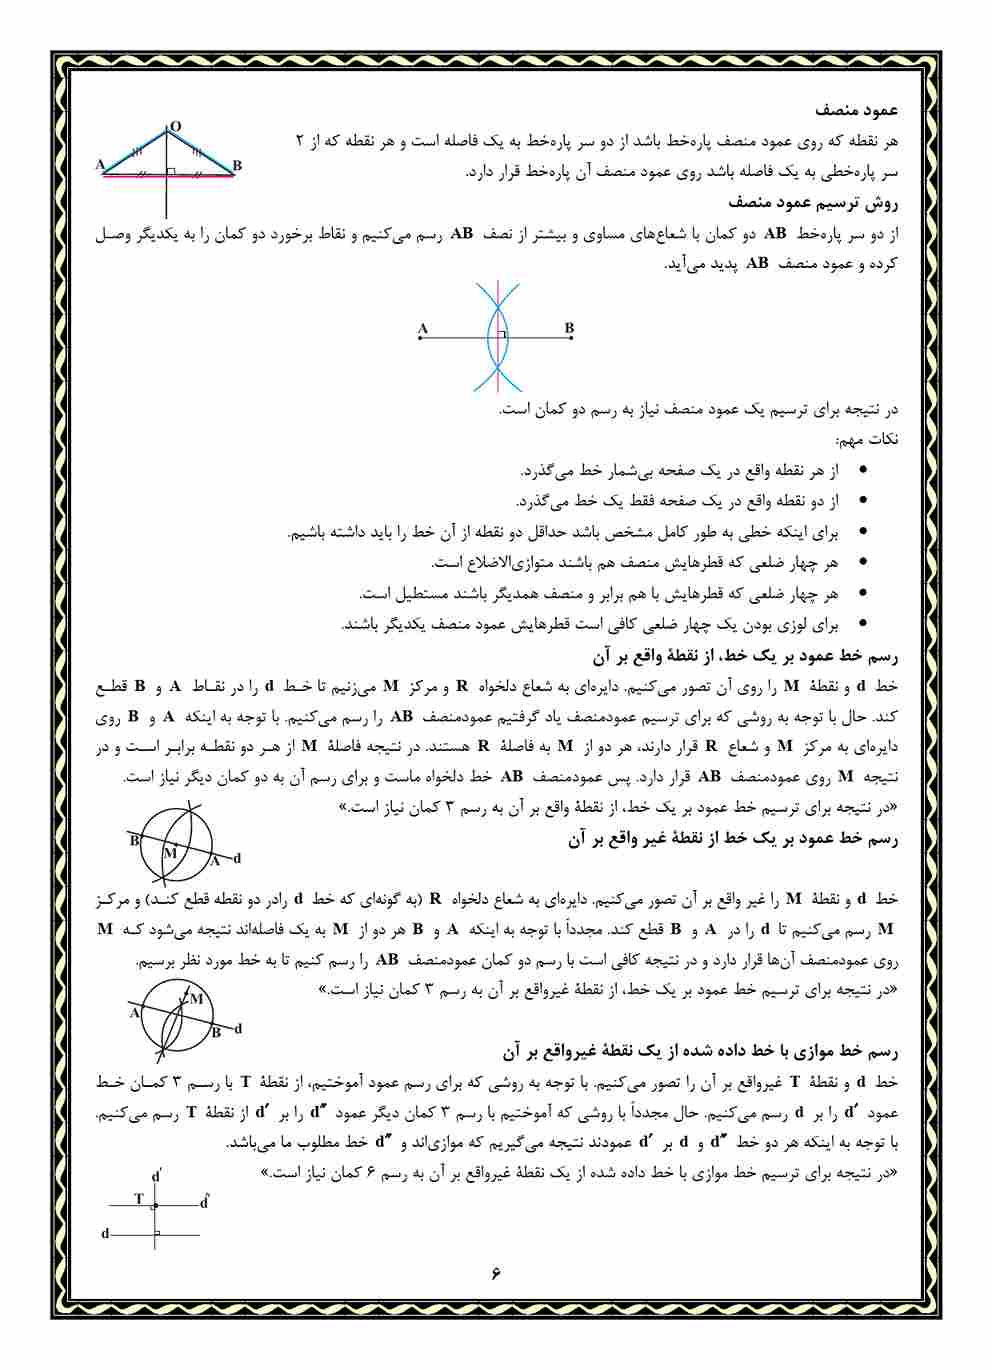 عمود منصف
هر نقطه که روی عمود منصف پاره‌خط باشد از دو سر پاره‌خط به یک فاصله است و هر نقطه که از ۲
سر پاره‌خطی به یک فاصله باشد روی عمود منصف آن پاره‌خط قرار دارد.
O
A
B
روش ترسیم عمود منصف
از دو سر پاره‌خط AB دو کمان با شعاع‌های مساوی و بیشتر از نصف AB رسم می‌کنیم و نقاط برخورد دو کمان را به یکدیگر وصل
کرده و عمود منصف AB پدید می‌آید.
A
B
در نتیجه برای ترسیم یک عمود منصف نیاز به رسم دو کمان است.
نکات مهم:
• از هر نقطه واقع در یک صفحه بی‌شمار خط می‌گذرد.
• از دو نقطه واقع در یک صفحه فقط یک خط می‌گذرد.
• برای اینکه خطی به طور کامل مشخص باشد حداقل دو نقطه از آن خط را باید داشته باشیم.
• هر چهار ضلعی که قطرهایش منصف هم باشند متوازی‌الاضلاع است.
• هر چهار ضلعی که قطرهایش با هم برابر و منصف همدیگر باشند مستطیل است.
• برای لوزی بودن یک چهار ضلعی کافی است قطرهایش عمود منصف یکدیگر باشند.
رسم خط عمود بر یک خط، از نقطهٔ واقع بر آن
خط d و نقطهٔ M را روی آن تصور می‌کنیم. دایره‌ای به شعاع دلخواه R و مرکز M می‌زنیم تا خط d را در نقاط A و B قطع
کند. حال با توجه به روشی که برای ترسیم عمودمنصف یاد گرفتیم عمودمنصف AB را رسم می‌کنیم. با توجه به اینکه A و B روی
دایره‌ای به مرکز M و شعاع R قرار دارند، هر دو از M به فاصلهٔ R هستند. در نتیجه فاصلهٔ M از هر دو نقطه برابر است و در
نتیجه M روی عمودمنصف AB قرار دارد. پس عمودمنصف AB خط دلخواه ماست و برای رسم آن به دو کمان دیگر نیاز است.
«در نتیجه برای ترسیم خط عمود بر یک خط، از نقطهٔ واقع بر آن به رسم ۳ کمان نیاز است.»
B
M
A
d
رسم خط عمود بر یک خط از نقطهٔ غیر واقع بر آن
خط d و نقطهٔ M را غیر واقع بر آن تصور می‌کنیم. دایره‌ای به شعاع دلخواه R (به گونه‌ای که خط d رادر دو نقطه قطع کند) و مرکز
M رسم می‌کنیم تا d را در A و B قطع کند. مجدداً با توجه به اینکه A و B هر دو از M به یک فاصله‌اند نتیجه می‌شود که M
روی عمودمنصف آن‌ها قرار دارد و در نتیجه کافی است با رسم دو کمان عمودمنصف AB را رسم کنیم تا به خط مورد نظر برسیم.
«در نتیجه برای ترسیم خط عمود بر یک خط، از نقطهٔ غیرواقع بر آن به رسم ۳ کمان نیاز است.»
M
A
B
d
رسم خط موازی با خط داده شده از یک نقطهٔ غیرواقع بر آن
خط d و نقطهٔ T غیرواقع بر آن را تصور می‌کنیم. با توجه به روشی که برای رسم عمود آموختیم، از نقطهٔ T با رسم ۳ کمان خط
عمود d′ را بر d رسم می‌کنیم. حال مجدداً با روشی که آموختیم با رسم ۳ کمان دیگر عمود d″ را بر d′ از نقطهٔ T رسم می‌کنیم.
با توجه به اینکه هر دو خط d″ و d بر d′ عمودند نتیجه می‌گیریم که موازی‌اند و d″ خط مطلوب ما می‌باشد.
«در نتیجه برای ترسیم خط موازی با خط داده شده از یک نقطهٔ غیرواقع بر آن به رسم ۶ کمان نیاز است.»
d′
T
d″
d
۶